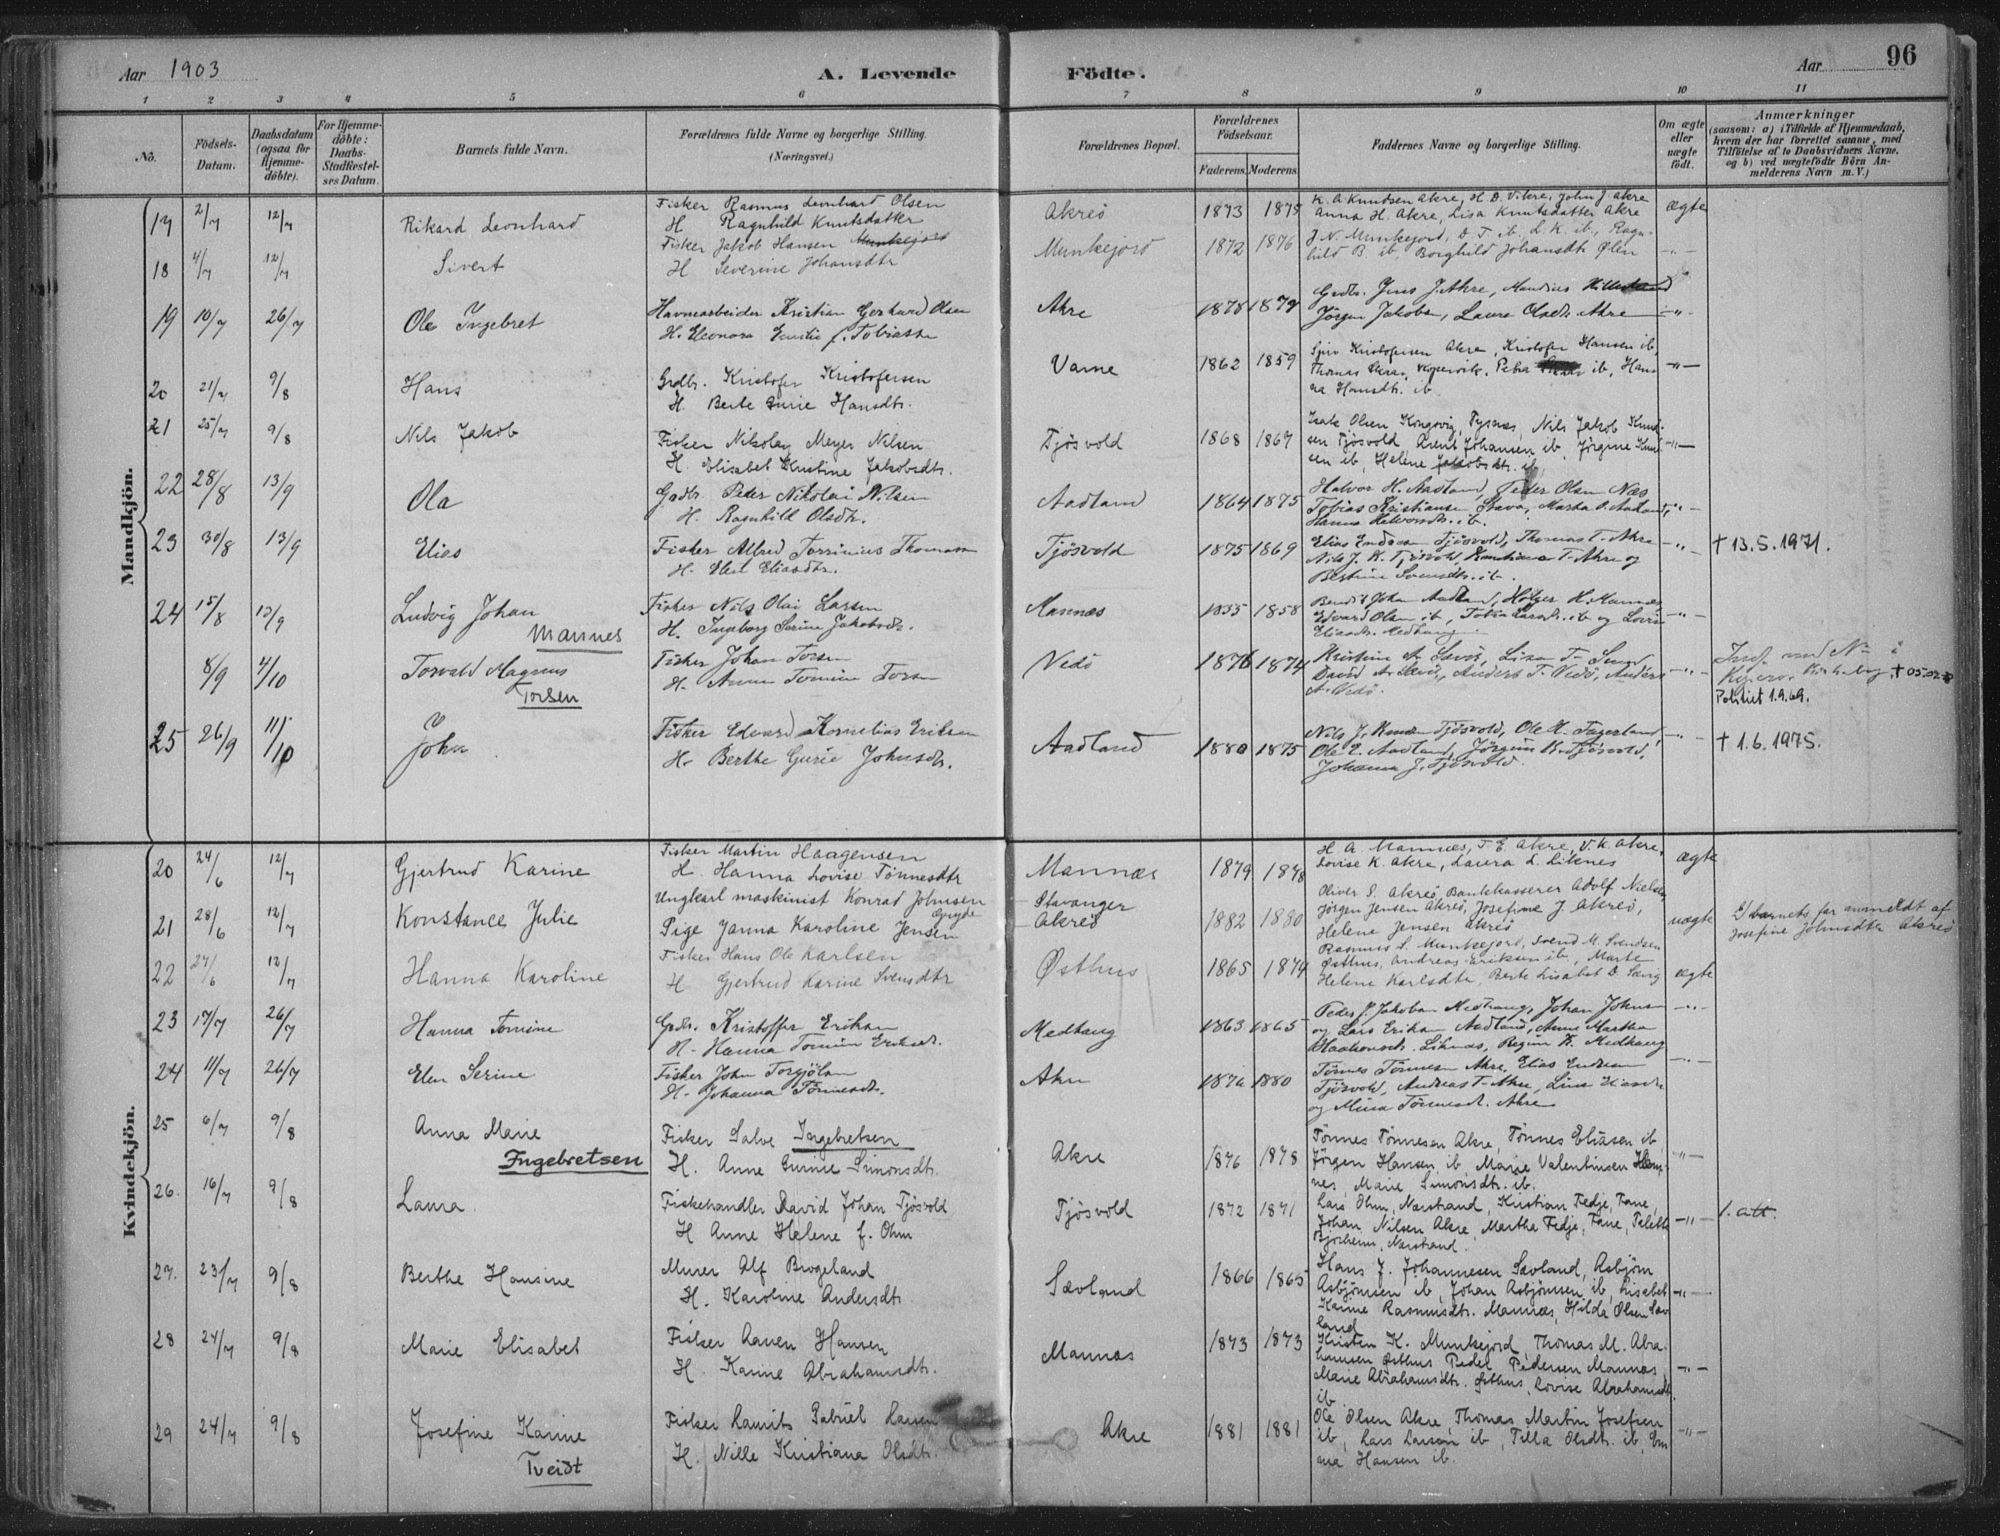 Aar 1903
A. Levende Födte.
Aar
96
1 2 3 4 5 6 7 8 9 10 11
No.
Födsels-Datum.
Daabsdatum (ogsaa for Hjemme-döbte).
For Hjemme-döbte: Daabs-Stadfæstel-ses Datum.
Barnets fulde Navn.
Forældrenes fulde Navne og borgerlige Stilling.
(Næringsvei.)
Forældrenes Bopæl.
Forældrenes Födselsaar.
Faderens. Moderens.
Faddernes Navne og borgerlige Stilling.
Om ægte eller uægte födt.
Anmærkninger
(saasom: a) i Tilfælde af Hjemmedaab,
hvem der har forrettet samme, med
Tilföielse af to Daabsvidners Navne,
og b) ved uægtefödte Börn An-
melderens Navn m. V.)
Mandkjön.
17 2/7 12/7 Rikard Leonhard Fisker Rasmus Leonhard Olsen
H Ragnhild Knutsdatter
Akreö 1873 1875 K. A. Knudsen Akre, H. D. Vikre, John J Akre
Anna H. Akre, Lisa Knutsdatter Akre
ægte
18 4/7 12/7 Sivert Fisker Jakob Hansen Munkejord
H Severine Johansdtr
Munkejord 1872 1876 J. N. Munkejord, D. T. ib. L. K. ib., Ragn-
hild B. ib, Borghild Johansdtr Ølen
-"-
19 10/7 26/7 Ole Ingebret Havnearbeider Kristian Gerhard Olsen
H. Eleonora Emilie f. Tobiassen
Akre 1878 1879 Grdbr. Jens J. Akre, Mandius
Jörgen Jakobsen, Laura Olsdtr. Akre
-"-
20 21/7 9/8 Hans Grdbr. Kristofer Kristofersen
H. Berte Gurie Hansdtr.
Varne 1862 1859 Kristofersen Akre, Kristofer Hansen ib,
Thomas Kopervik, Petra ib, Han-
na Hansdtr. ib
-"-
21 25/7 9/8 Nils Jakob Fisker Nikolay Meyer Nilsen
H. Elisabet Kristine Jakobsdtr.
Tjösvold 1868 1867 Isak Olsen Kongsvig, Tysnes, Nils Jakob Knud-
sen Tjösvold, Arent Johansen ib, Jörgine Knud-
sen ib, Helene Jakobsdtr. ib
-"-
22 28/8 13/9 Ola Grdbr. Peder Nikolai Nilsen
H. Ragnhild Olsdtr.
Aadland 1864 1875 Halvor H. Aadland, Peder Olsen Næs
Tobias Kristiansen Stava, Marta O. Aadland,
Hanna Halvorsdtr. ib.
-"-
23 30/8 13/9 Elias Fisker Alfred Torrinius Thomassen
H. Eliasdtr.
Tjösvold 1875 1869 Elias Endresen Tjösvold, Thomas T. Akre
Nils J. K. Tjösvold, T. Akre og
Svensdtr. ib.
-"- † 13.5.1971.
24 15/8 13/9 Ludvig Johan
Mannes
Fisker Nils Olai Larsen
H. Ingeborg Serine Jakobsdtr.
Mannæs 1855 1858 Bendik Johan Aadland, Holger H. Mannæs
Edvard Olsen ib, ib og Lovise
Eliasdtr. Medhaug
-"-
8/9 4/10 Torvald Magnus
Torsen
Fisker Johan Torsen
H. Anna Tomine Torsen
Vedö 1876 1874 Kristine A. Sævig, Lisa T.
David A. Sævig, Anders T. Vedö, Anders
A. Vedö.
-"- Indf. ved No i
Kopervik Kirkebog † 05.02.
Politiet 1.9.69.
25 26/9 11/10 John Fisker Edvard Kornelius Eriksen
H. Berthe Gurie Johnsdtr.
Aadland 1880 1875 Nils J. Knudsen Tjösvold, Ole H. Fagerland,
Ole E. Aadland, Jörgine K. Tjösvold,
Johanna J. Tjösvold.
-"- † 1.6.1975.
Kvindekjön.
20 24/6 12/7 Gjertrud Karine Fisker Martin Haagensen
H. Hanna Lovise Tönnesdtr
Mannæs 1879 1878 H. A. Mannæs, T. E. Akre, V. K. Akre,
Lovise K. Akre, Laura L. Liknes
ægte
21 28/6 12/7 Konstance Julie Ungkarl maskinist Konrad Johnsen
Pige Janna Karoline Jensen
Stavanger
Akreö
1882 1880 Oliver S. Akreö, Bankkasserer Adolf Nielsen
Jörgen Jensen Akreö, Josefine J. Akreö,
Helene Jensen Akreö
uægte barnets far anmeldt af
Josefine Johnsdtr Akreö
22 27/6 12/7 Hanna Karoline Fisker Hans Ole Karlsen
H Gjertrud Karine Svensdtr
Østhus 1865 1874 Rasmus S. Munkejord, Svend M. Svendsen
Østhus, Andreas Eriksen ib., Marte
Helene Karlsdtr, Berte Lisabet D. Sævig
ægte
23 17/7 26/7 Hanna Tomine Grdbr. Kristoffer Eriksen
H. Hanna Tomine Eriksdtr.
Medhaug 1863 1865 Peder P. Jakobsen Medhaug, Johan Johnsen
og Lars Eriksen Aadland, Anne Martha
Haakonsdtr. Liknæs, Regine K. Medhaug
-"-
24 11/7 26/7 Elen Serine Fisker John Torgjölsen
H. Johanna Tönnesdtr.
Akre 1876 1880 Tönnes Tönnesen Akre, Elias Endresen
Tjösvold, Andreas T. Akre, Lina
og Mina Tönnesdtr. Akre
-"-
25 6/7 9/8 Anna Marie
Ingebretsen
Fisker Salve Ingebretsen
H. Anne Gurine Simonsdtr.
Akre 1876 1878 Tönnes Tönnesen Akre, Tönnes Eliasen ib,
Jörgen Hansen ib, Marie Valentinsen
nes, Marie Simonsdtr. ib.
-"-
26. 16/7 9/8 Laura. Fiskehandler David Johan Tjösvold
H Anne Helene f. Ohm
Tjösvold 1872 1871 Lars Ohm, Narstrand, Kristian Fedje, Fane,
Johan Nilsen Akre, Martha Fedje, Fane,
Bjorheim, Narstrand.
-"- 1. att.
27. 23/7 9/8 Berthe Hansine Murer Alf Brogeland
H. Karoline Andersdtr.
Sævland 1866 1865 Hans J. Johannesen Sævland, Asbjörn
Asbjörnsen ib, Johan Asbjörnsen ib, Lisabet
Karine Rasmusdtr. Mannæs, Hilda Olsen Sæv-
land
-"-
28 24/7 9/8 Marie Elisabet Fisker Aanen Hansen
H. Karine Abrahamsdtr.
Mannæs 1873 1873 Kristen K. Munkejord, Thomas M. Abra-
hamsen Østhus Peder Pedersen Mannæs
Marie Abrahamsdtr. Østhus, Lovise Abrahamsdtr
ib
-"-
29 24/7 9/8 Josefine Karine
Tveidt
Fisker Laurits Gabriel Larsen
H. Nille Kristiana Olsdtr.
Akre 1881 1881 Ole Olsen Akre, Thomas Martin Josefsen
ib, Lars Larsen ib, Tilla Olsdtr. ib, Em-
ma Hansen ib.
-"-